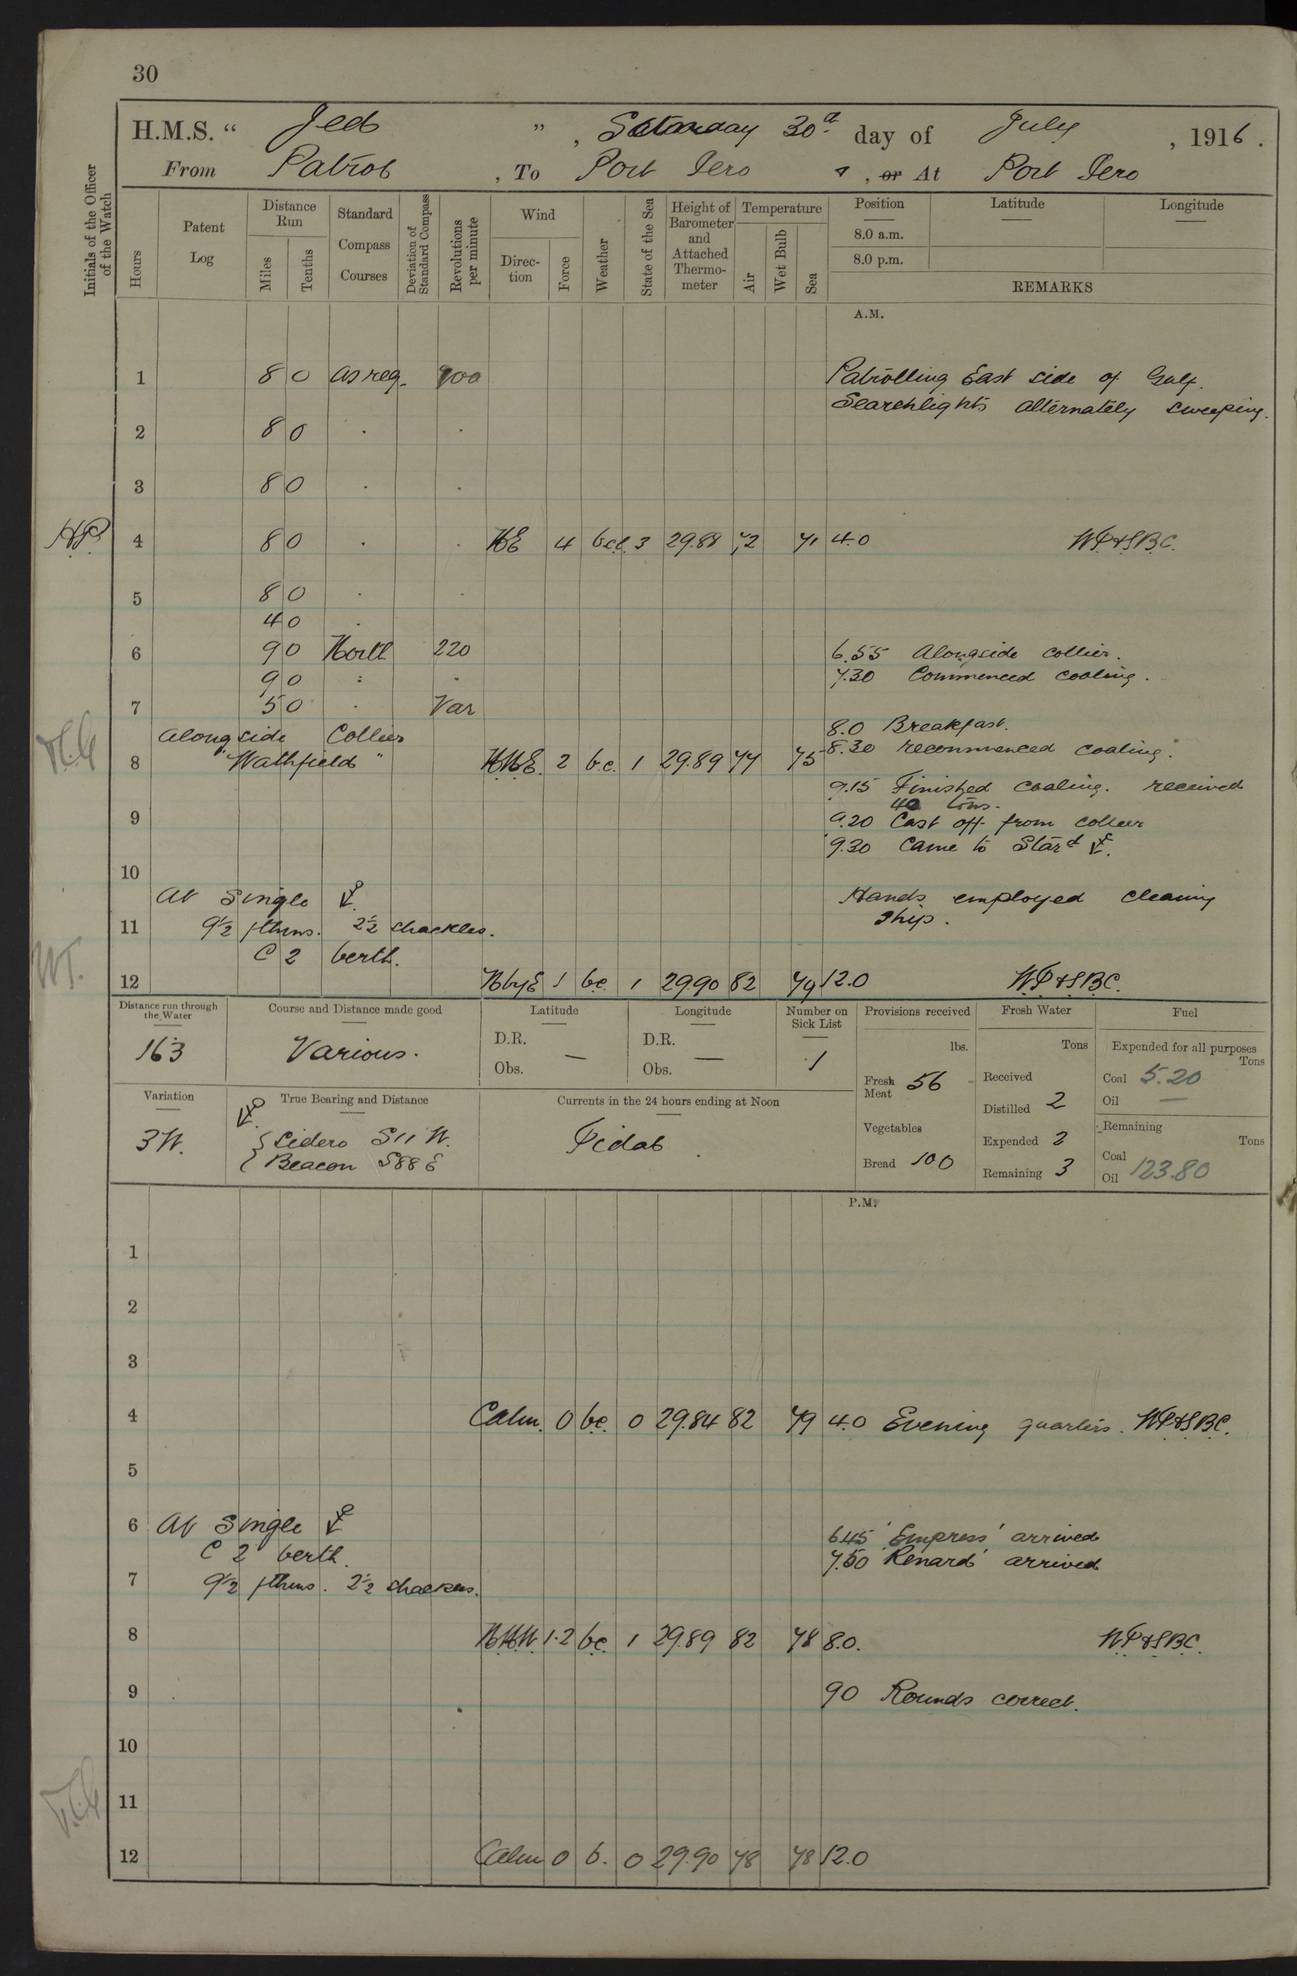 30
H.M.S. “ Jed ” , Saturday 30th day of July , 1916 .
From Patrol , To Port Iero , or At Port Iero
Initials of the Officer of the Watch
Hours
Patent Log
Distance Run
Miles
Tenths
Standard Compass Courses
Deviation of Standard Compass
Revolutions per minute
Wind
Direction
Force
Weather
State of the Sea
Height of Barometer and Attached Thermometer
Temperature
Air
Wet Bulb
Sea
Position Latitude Longitude
8.0 a.m.
8.0 p.m.
REMARKS
A.M.
1 8 0 as req. 200 Patrolling East side of Gulf.
Searchlights alternately sweeping.
2 8 0 . .
3 8 0 . .
4 8 0 . . NE 4 3 29.88 72 71 4.0 WP&SBC.
5 8 0 . .
4 0 .
6 9 0 North 220 6.55 Alongside collier.
9 0 : . 7.30 Commenced coaling.
7 5 0 . Var
Alongside Collier 8.0 Breakfast.
8 "Wathfield" NNE. 2 b.c. 1 29.89 77 75 8.30 recommenced coaling.
9.15 Finished coaling. received
40 tons.
9 9.20 Cast off from collier
9.30 Came to Starbd ⚓.
10
At Single ⚓ Hands employed cleaning
11 9½ fthms. 2½ shackles. ship.
C 2 berth.
12 NbyE 1 bc. 1 29.90 82 79 12.0 WP&SBC.
Distance run through the Water
163
Course and Distance made good
Various.
Latitude
D.R.
Obs. —
Longitude
D.R.
Obs. —
Number on Sick List
1
Provisions received
lbs.
Fresh Meat 56
Vegetables
Bread 100
Fresh Water
Tons
Received
Distilled 2
Expended 2
Remaining 3
Fuel
Expended for all purposes
Tons
Coal 5.20
Oil —
Remaining
Tons
Coal 123.80
Oil
Variation
3W.
True Bearing and Distance
⚓ { Sidero S11W.
Beacon S88E
Currents in the 24 hours ending at Noon
Tidal
P.M.
1
2
3
4 Calm. 0 bc. 0 29.84 82 79 4.0 Evening quarters. WP&SBC.
5
6 At Single ⚓ 6.45 'Empress' arrived
C 2 berth. 7.50 'Renard' arrived
7 9½ fthms. 2½ shackles.
8 NNW 1.2 bc. 1 29.89 82 78 8.0. WP&SBC.
9 90 Rounds correct.
10
11
12 Calm 0 b. 0 29.90 78 78 12.0